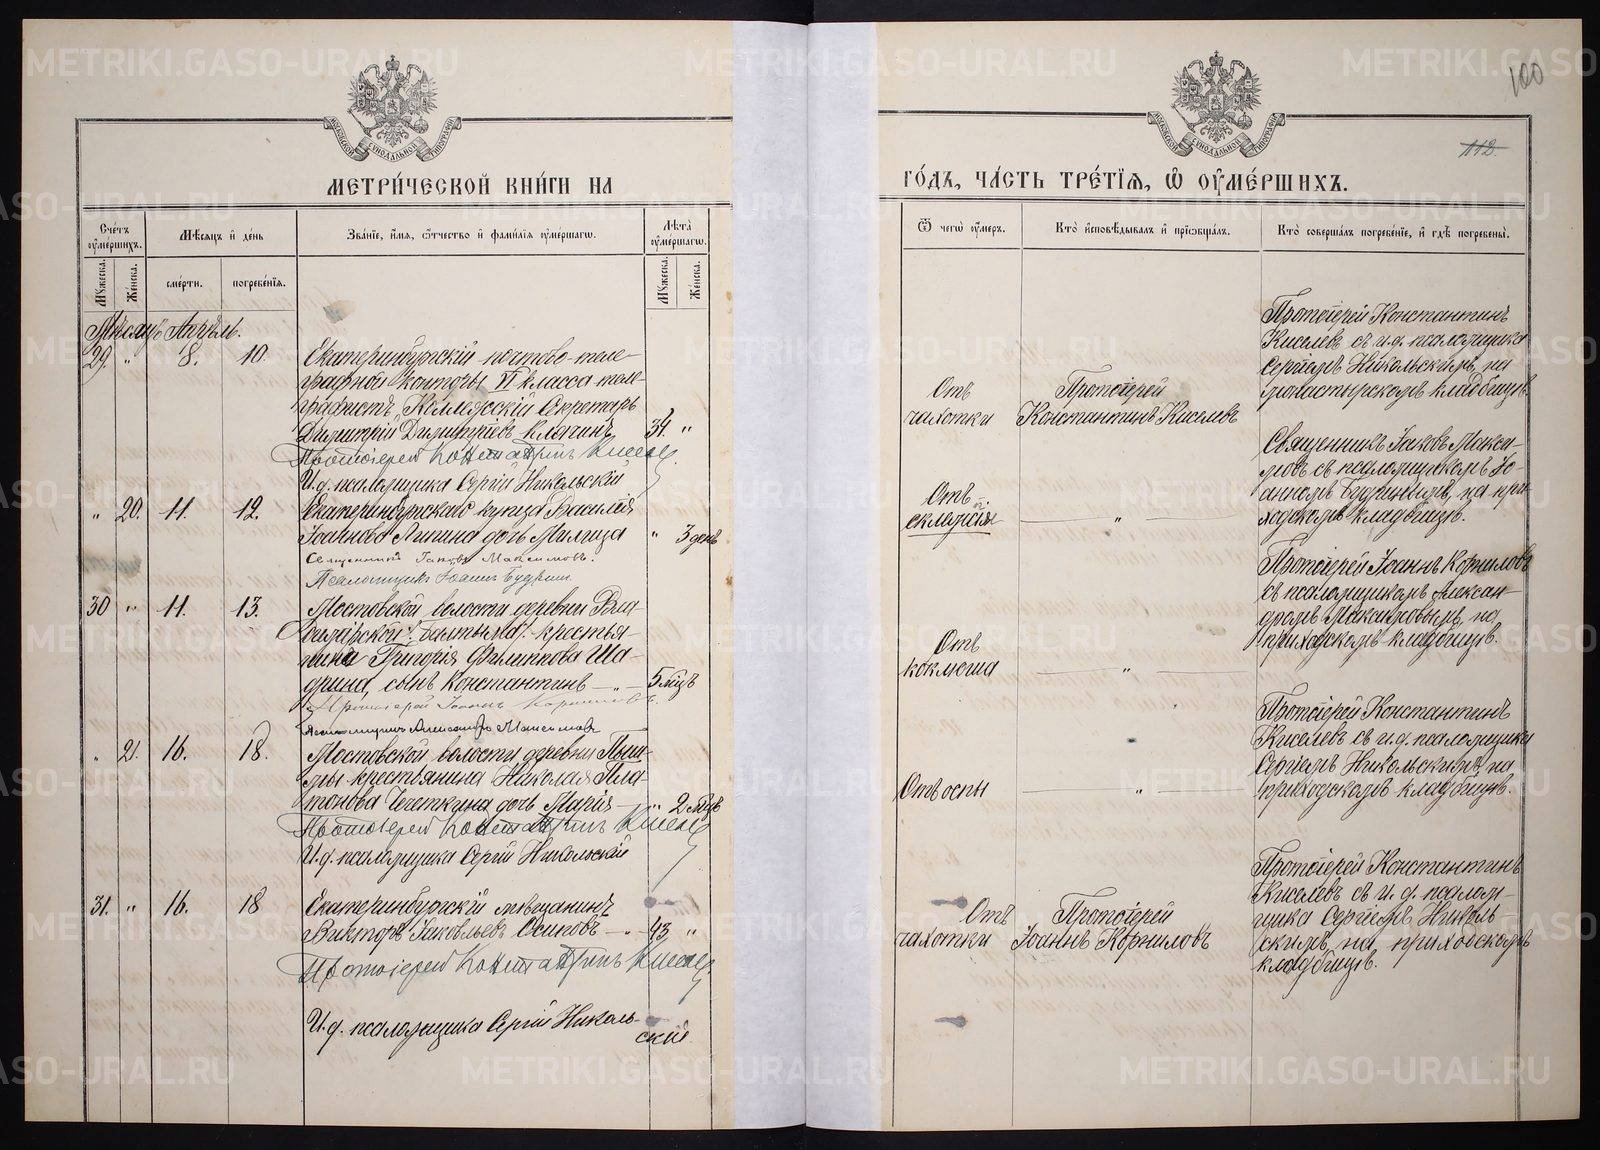 METRIKI.GASO-URAL.RU
100
112
МОСКОВСКОЙ СѴНОДАЛЬНОЙ ТИПОГРАФІИ
МОСКОВСКОЙ СѴНОДАЛЬНОЙ ТИПОГРАФІИ
МЕТРИ́ЧЕСКОЙ КНИ́ГИ НА
ГО́ДЪ, ЧА́СТЬ ТРЕ́ТЇЯ, Ѿ ОУ҆МЕ́РШИХЪ.
Сче́тъ оу҆ме́ршихъ.
Мꙋжеска.
Же́нска.
Мѣ́сяцъ и҆ де́нь
сме́рти.
погребе́нїя.
Зва́нїе, и҆́мя, ѻ҆́тчество и҆ фами́лїя оу҆ме́ршагѡ.
Лѣ́та оу҆ме́ршагѡ.
Мꙋжеска.
Же́нска.
Ѿ чегѡ̀ оу҆́меръ.
Кто̀ и҆сповѣ́дывалъ и҆ прїѡбща́лъ.
Кто̀ соверша́лъ погребе́нїе, и҆ гдѣ̀ погребены̀.
Мѣсяцъ Апрѣль.
29. " 8. 10.
Екатеринбургскій почтово-теле-
графной конторы VI класса теле-
графистъ, Коллежскій Секретарь
Димитрій Димитріевъ Клячинъ 34. "
Протоіерей Константинъ Киселевъ
И.д. псаломщика Сергій Никольскій
Отъ
чахотки
Протоіерей
Константинъ Киселевъ
Протоіерей Константинъ
Киселевъ съ и.д. псаломщика
Сергіемъ Никольскимъ, на
монастырскомъ кладбищѣ.
" 20. 11. 12.
Екатеринбургскаго купца Василія
Іоаннова Липина дочь Милица " 3 день
Священникъ Іаковъ Максимовъ.
Псаломщикъ Іоаннъ Будринъ
Отъ
склампсія
"
Священникъ Іаковъ Макси-
мовъ съ псаломщикомъ Іо-
анномъ Будринымъ, на при-
ходскомъ кладбищѣ.
30 " 11. 13.
Мостовской волости деревни Вла-
димірской /Балтыма/ крестья-
нина Григорія Филиппова Ша-
дрина, сынъ Константинъ — " — 5 мѣц
Протоіерей Іоаннъ Корниловъ.
Псаломщикъ Александръ Максимовъ
Отъ
коклюша
"
Протоіерей Іоаннъ Корниловъ
съ псаломщикомъ Алексан-
дромъ Максимовымъ, на
приходскомъ кладбищѣ.
" 21. 16. 18.
Мостовской волости деревни Пыш-
мы крестьянина Николая Пла-
тонова Чечеткина дочь Марія — " 2 мѣц
Протоіерей Константинъ Киселевъ
И.д. псаломщика Сергій Никольскій
Отъ оспы
"
Протоіерей Константинъ
Киселевъ съ и.д. псаломщика
Сергіемъ Никольскимъ, на
приходскомъ кладбищѣ.
31. " 16. 18
Екатеринбургскій мѣщанинъ
Викторъ Іаковлевъ Осиповъ — " — 43 "
Протоіерей Константинъ Киселевъ
И.д. псаломщика Сергій Николь-
скій
Отъ
чахотки
Протоіерей
Іоаннъ Корниловъ
Протоіерей Константинъ
Киселевъ съ и.д. псалом-
щика Сергіемъ Николь-
скимъ, на приходскомъ
кладбищѣ.